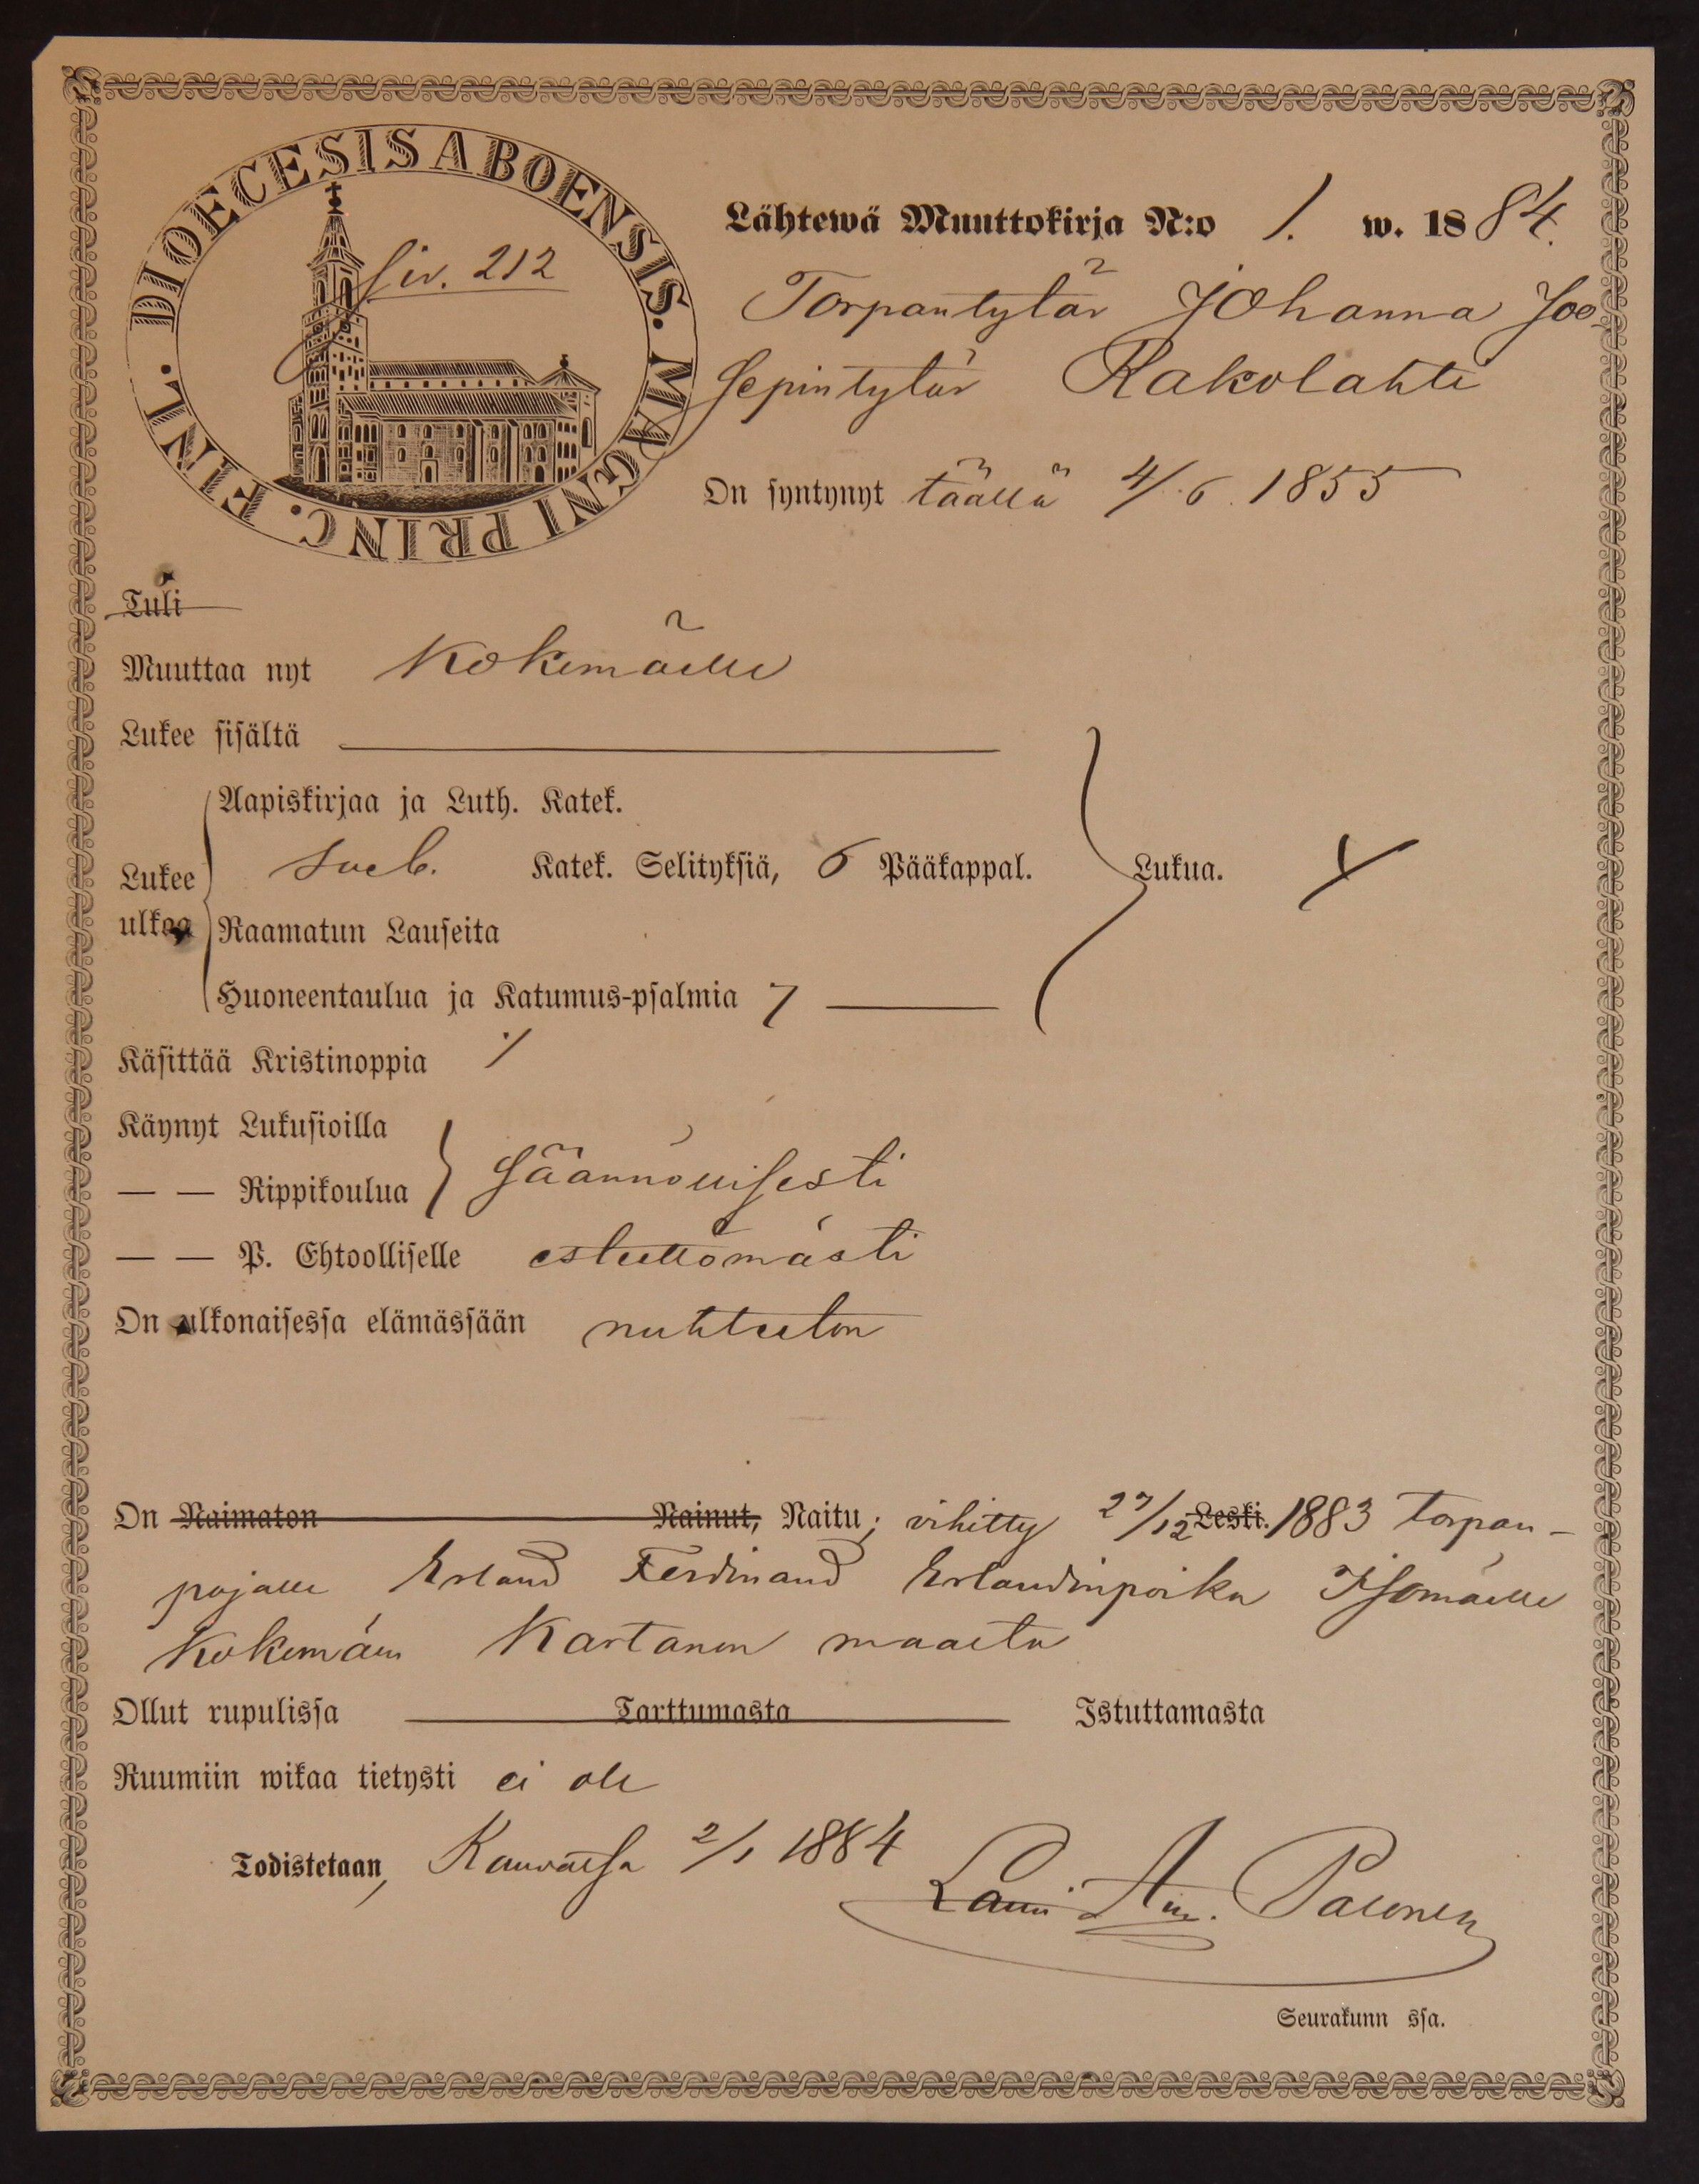 DIOECESIS ABOENSIS. MAGNI PRINC. FINL.
Siv. 212
Lähtewä Muuttokirja N:o 1. w. 1884.
Torpantytär Johanna Joo-
sepintytär Rakolahti
On syntynyt täällä 4/6. 1855
Tuli
Muuttaa nyt Kokemäelle
Lukee sisältä
Aapiskirjaa ja Luth. Katek.
Lukee Sveb. Katek. Selityksiä, 6 Pääkappal. Lukua.
ulkoa Raamatun Lauseita
Huoneentaulua ja Katumus-psalmia 7
Käsittää Kristinoppia
Käynyt Lukusioilla
— — Rippikoulua säännöllisesti
— — P. Ehtoolliselle esteettömästi
On ulkonaisessa elämässään nuhteeton
On Naimaton Nainut, Naitu; vihitty 27/12 Leski. 1883 torpan-
pojalle Erland Ferdinand Erlandinpoika Isomäelle
Kokemäen Kartanon maalta
Ollut rupulissa Tarttumasta Istuttamasta
Ruumiin wikaa tietysti ei ole
Todistetaan, Kauvatsa 2/1 1884
Palonen
Seurakunn ssa.